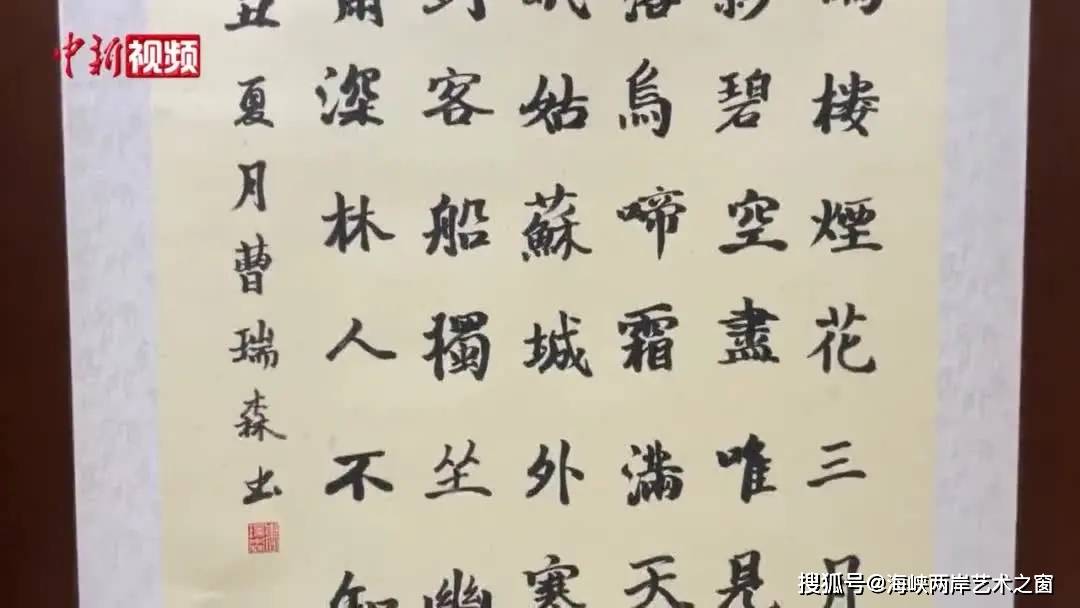 中新视频
樓煙花三月
影碧空盡唯見
落烏啼霜滿天
眠姑蘇城外寒
到客船獨坐幽
深林人不知
丑夏月曹瑞森书
搜狐号@海峡两岸艺术之窗